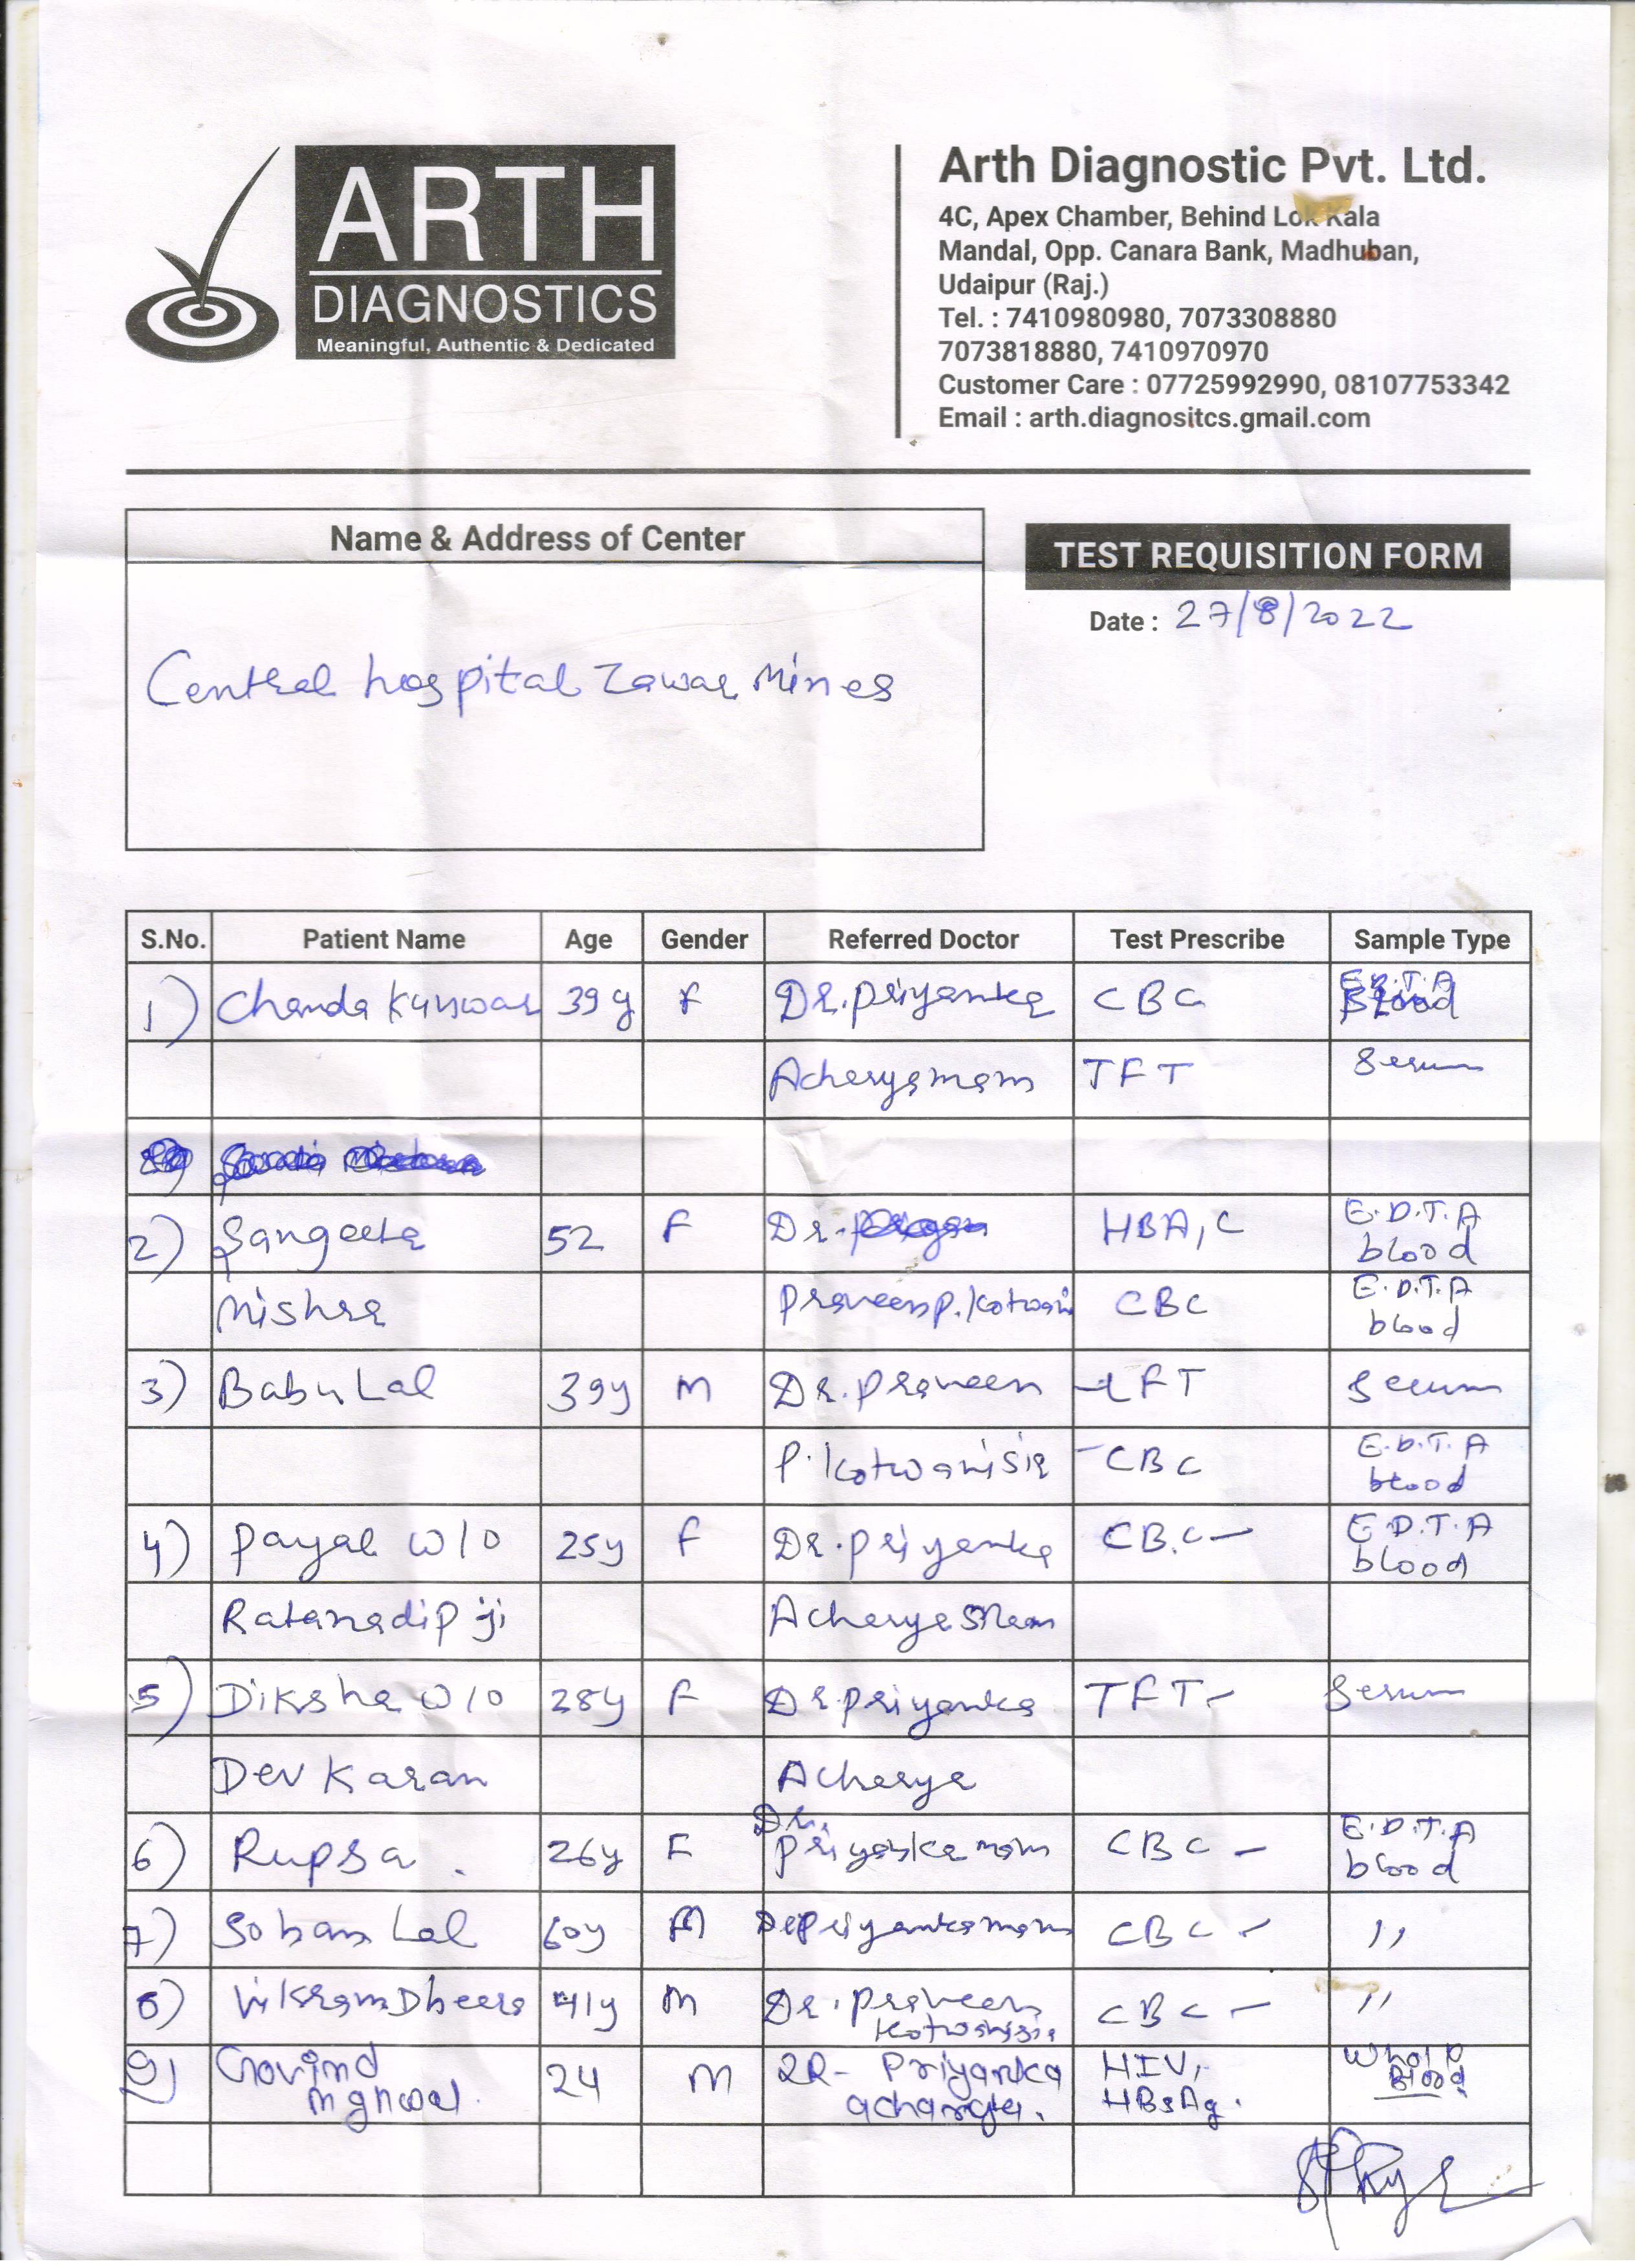 ARTH
DIAGNOSTICS
Meaningful, Authentic & Dedicated
Arth Diagnostic Pvt. Ltd.
4C, Apex Chamber, Behind Lok Kala
Mandal, Opp. Canara Bank, Madhuban,
Udaipur (Raj.)
Tel. : 7410980980, 7073308880
7073818880, 7410970970
Customer Care : 07725992990, 08107753342
Email : arth.diagnositcs.gmail.com
Name & Address of Center
TEST REQUISITION FORM
Date : 27/8/2022
Central hospital Zawar Mines
S.No. Patient Name Age Gender Referred Doctor Test Prescribe Sample Type
1) Chanda Kunwar 39y F Dr. Priyanka CBC E.D.T.A Blood
Acharya mam TFT Serum
2) Sangeeta 52 F Dr. HBA1C E.D.T.A blood
Mishra Praveen P. Kotwani CBC E.D.T.A blood
3) Babu Lal 39y M Dr. Praveen LFT Serum
P. Kotwani sir - CBC E.D.T.A blood
4) Payal W/O 25y F Dr. Priyanka CBC - E.D.T.A blood
Ratanadip ji Acharya Mam
5) Diksha W/O 28y F Dr. Priyanka TFT - Serum
Dev Karan Acharya
6) Rupsa . 26y F Dr. Priyanka mam CBC - E.D.T.A blood
7) Sohan Lal 60y M Dr Priyanka mam CBC - ,,
8) Vikram Dheera 41y M Dr. Praveen Kotwani sir CBC - ,,
9) Govind 24 M DR- Priyanka HIV, Whole
acharya. HBsAg. Blood